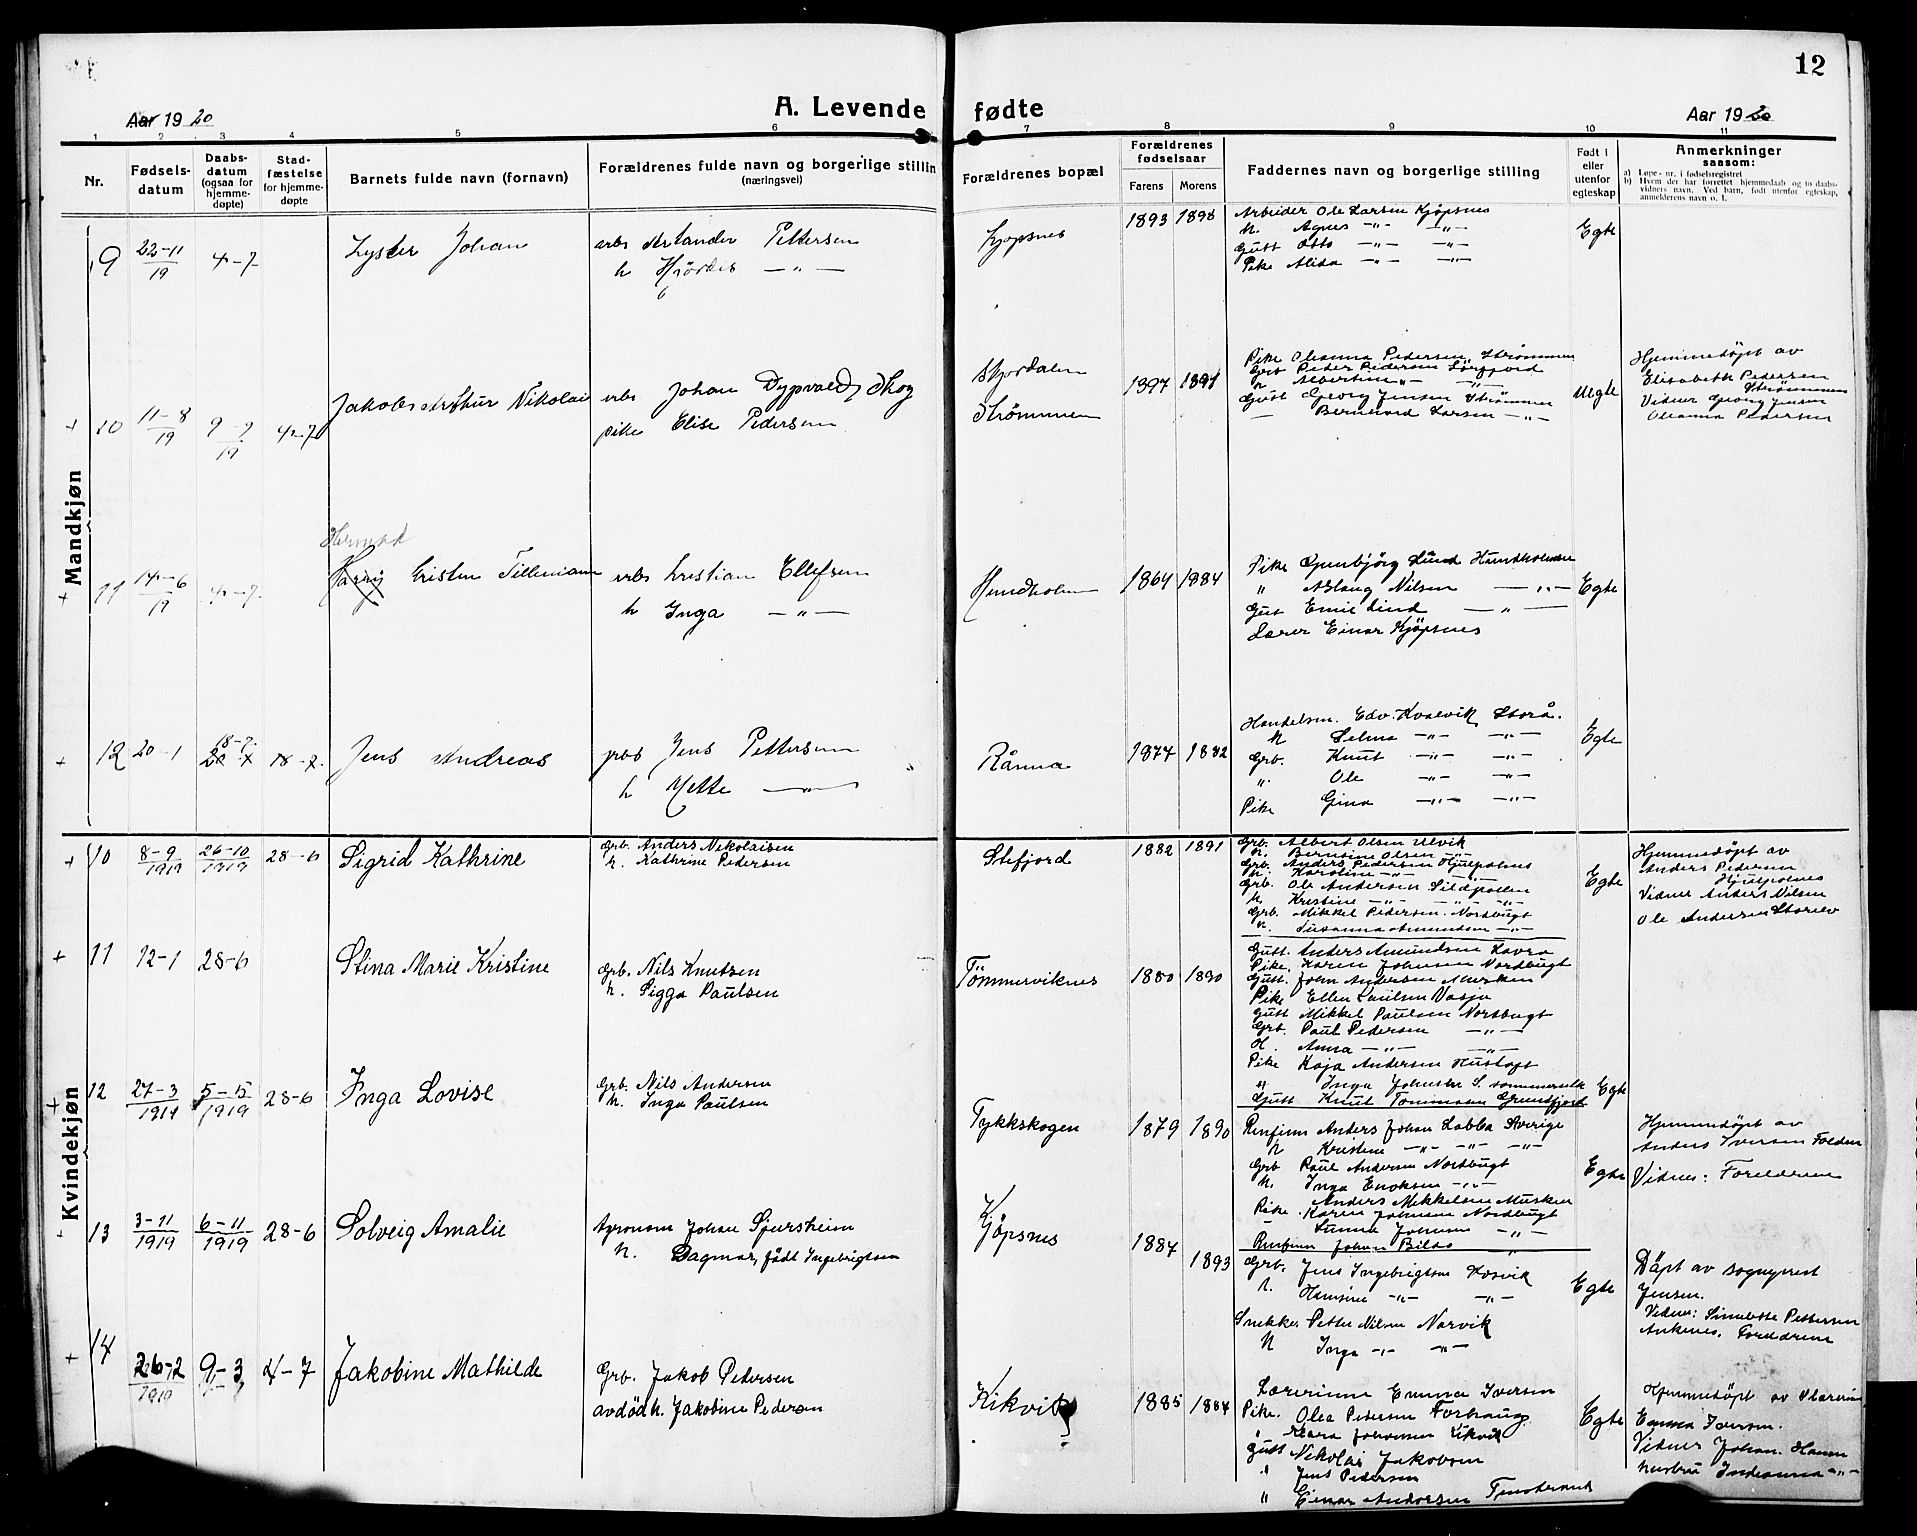 12
A. Levende fødte
Aar 1920
Aar 1920
1 2 3 4 5 6 7 8 9 10 11
Nr.
Fødsels-
datum
Daabs-
datum
(ogsaa for
hjemme-
døpte)
Stad-
fæstelse
for hjemme-
døpte
Barnets fulde navn (fornavn)
Forældrenes fulde navn og borgerlige stillin
(næringsvei)
Forældrenes bopæl
Forældrenes
fødselsaar
Farens Morens
Faddernes navn og borgerlige stilling
Født i
eller
utenfor
egteskap
Anmerkninger
saasom:
a) Løpe-nr. i fødselsregistret
b) Hvem der har forrettet hjemmedaab og to daabs-
vidners navn. Ved barn, født utenfor egteskap,
anmelderens navn o. l.
Mandkjøn
9 22-11/19 4-7 Lyster Johan
arb Pettersen
h Hjördis -"-
Kjøpsnes 1893 1898
Arbeider Ole Larsen Kjøpsnes
h. Agnes -"- -"-
Gutt Otto -"- -"-
Pike Alida -"- -"-
Egte
10 11-8/19 9-9/19 4-7 Jakob Arthur Nikolai
arb Johan Dypvald Skog
pike Elise Pedersen
Skjordalen
Strømmen
1897 1891
Pike Oleanna Pedersen, Strømmen
Grb Peder Pedersen Sørfjord
h Albertine -"- -"-
Gutt Georg Jensen Strømmen
— Bernhard Larsen -"-
Uegte
Hjemmedøpt av
Elisabeth Pedersen
Strømmen
Vidner Georg Jensen
Oleanna Pedersen
+ 11 14-6/19 4-7
Harry Cristen Tillemann
arb Cristian Ellefsen
h Inga -"-
Hundholm 1864 1884
Pike Gunbjørg Lund Hundholmen
" Aslaug Nilsen -"-
Gut Emil Lind -"-
Lærer Einar Kjøpsnes
Egte
12 20-1 18-7 18-7. Jens Andreas
grb Jens Pettersen
h Mette -"-
Rånna 1874 1882
Handelsm. Edv. Kvalvik Storå.
h Selma -"- -"-
Grb. Knut -"- -"-
". Ole -"- -"-
Pike Gina -"- -"-
Egte
Kvindekjøn
+ 10 8-9/1919 26-10/1919 28-6 Sigrid Kathrine
Grb. Anders Nikolaisen
h. Kathrine Pedersen
Stefjord 1882 1891
Grb. Albert Olsen Ulvik
h. Berntine Olsen -"-
Grb. Anders Pedersen Hjulpolnes
h. Karoline -"-
Grb. Ole Andersen Sildpollen
h. Kristine -"- -"-
Grb. Mikkel Pedersen Nordbugt
h. Susanna Amundsen -"-
Egte
Hjemmedøpt av
Anders Pedersen
Hjulpolnes
Vidner Anders Nilsen
Ole Andersen
+ 11 12-1 28-6 Stina Marie Kristine
Grb. Nils Knutsen
h. Sigga Paulsen
Tømmerviknes 1880 1890
Gutt Anders Amundsen
Pike. Karen Johnsen Nordbugt
Gutt. John Andersen Musken
Pike Ellen Paulsen Vasja
Gutt Mikkel Paulsen Nordbugt
Grb. Paul Pedersen -"-
H. Anna -"- -"-
Pike Kaja Andersen Hustoft
" Inga Johnsen
Gutt Knut Tommasen Grundfjord
Egte
+ 12 27-3/1919 5-15/1919 28-6 Inga Lovise
Grb. Nils Andersen
h. Inga Paulsen
Tykkskogen 1879 1890
Renfinn Anders Johan Labba Sverige
h Kristine -"- -"- -"-
Grb Paul Andersen Nordbugt
h. Inga Enoksen -"-
Anders Mikkelsen Musken
Pike. Karen Johnsen Nordbugt
Johnsen -"-
Renfinn Johan
Egte
Hjemmedøpt av
Anders Iversen Folden
Vidnes: Foreldrene
13 3-11/1919 6-11/1919 28-6 Solveig Amalie
Agronom Johan Sjursheim
h. Dagmar, født Ingebrigtsen
Kjøpsnes 1884 1893
Grb. Jens Ingebrigtsen Kosvik
h. Hansine -"- -"-
Snekker Petter Nilsen Narvik
h Inga -"- -"-
Egte
Døpt av sogneprest
Jensen.
Vidner: Pettersen
Ankenes. Foreldrene
+ 14 26-2/1919 9-3 4-7 Jakobine Mathilde
Grb. Jakob Petersen
avdød h. Jakobine Pedersen
Kikvik 1885 1884
Lærerinne Emma Iversen
Pike. Olea Petersen Forhaug
" Klara Johansen Kikvik
Gutt Nikolai Jakobsen
" Jens Pedersen
" Einar Andersen
Egte
Hjemmedøpt av
Emma Iversen.
Vidner Johan Hansen
hustru Indianna -"-